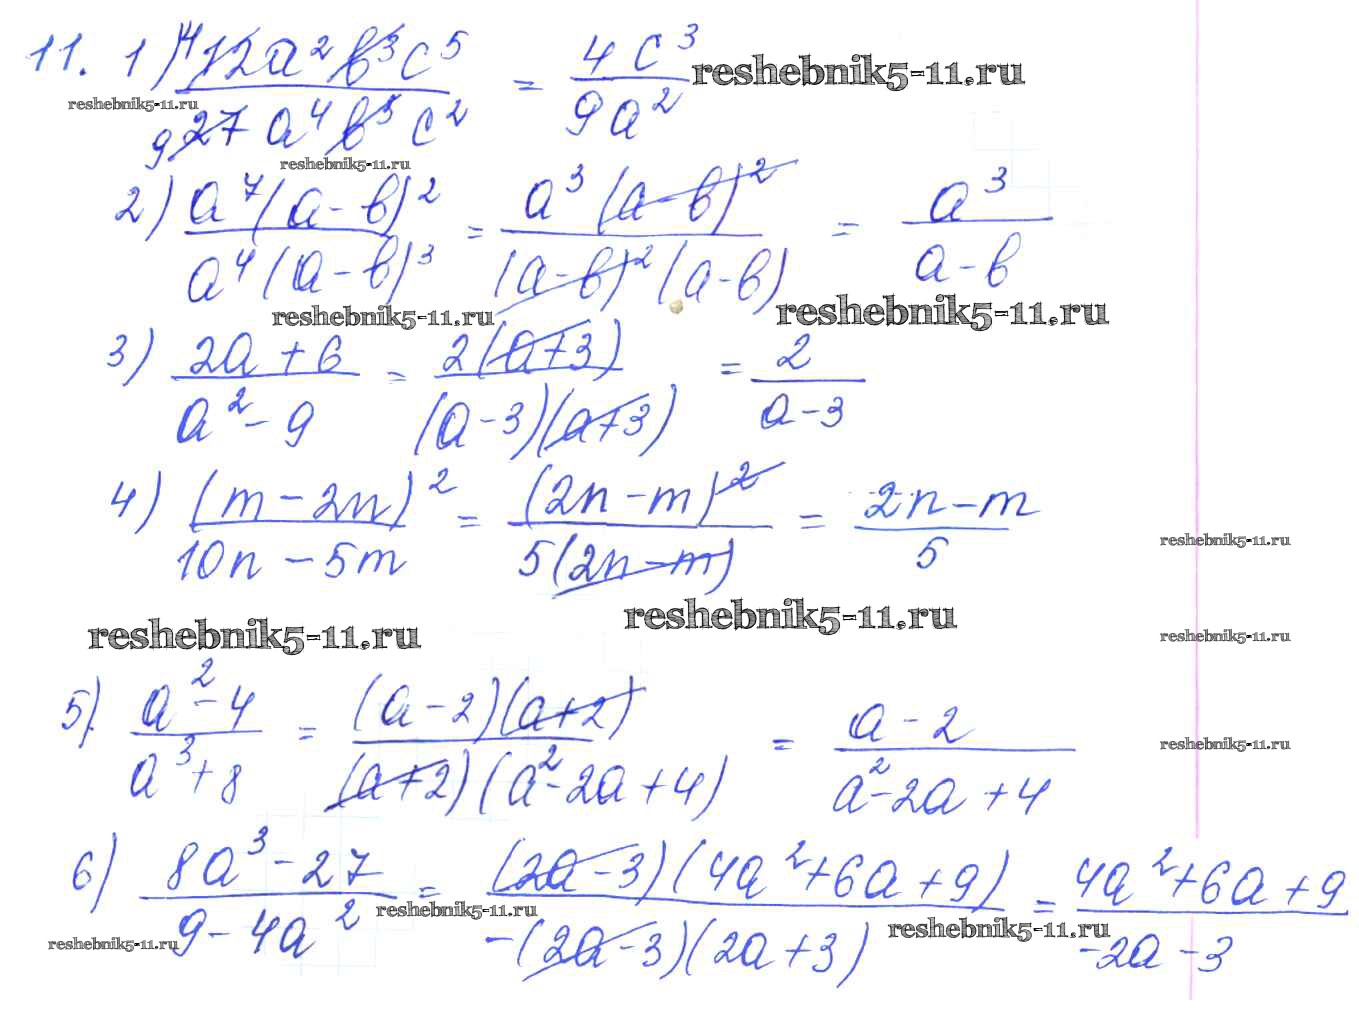 11. 1) 4 12a²b³c⁵ / 9 27a⁴b³c² = 4c³ / 9a² reshebnik5-11.ru
reshebnik5-11.ru
reshebnik5-11.ru
2) a⁷(a-b)² / a⁴(a-b)³ = a³(a-b)² / (a-b)²(a-b) = a³ / a-b
reshebnik5-11.ru reshebnik5-11.ru
3) 2a+6 / a²-9 = 2(a+3) / (a-3)(a+3) = 2 / a-3
4) (m-2n)² / 10n-5m = (2n-m)² / 5(2n-m) = 2n-m / 5
reshebnik5-11.ru
reshebnik5-11.ru reshebnik5-11.ru
reshebnik5-11.ru
5) a²-4 / a³+8 = (a-2)(a+2) / (a+2)(a²-2a+4) = a-2 / a²-2a+4
reshebnik5-11.ru
6) 8a³-27 / 9-4a² = (2a-3)(4a²+6a+9) / -(2a-3)(2a+3) = 4a²+6a+9 / -2a-3
reshebnik5-11.ru reshebnik5-11.ru
reshebnik5-11.ru